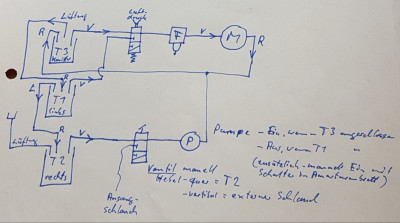 Lüftung
V
Luft-
druck
F
V
M
R
R
T3
V
R
L
T1
links
V
Lüftung
R
T2
rechts
V
I
P
Ansaug-
schlauch
Ventil manuell
Hebel - quer = T2
- vertikal = externe Schlauch
Pumpe - Ein, wenn T3 angeschlossen
- Aus, wenn T1 "
(zusätzlich - manuell Ein mit
Schalter in Armaturenbrett)